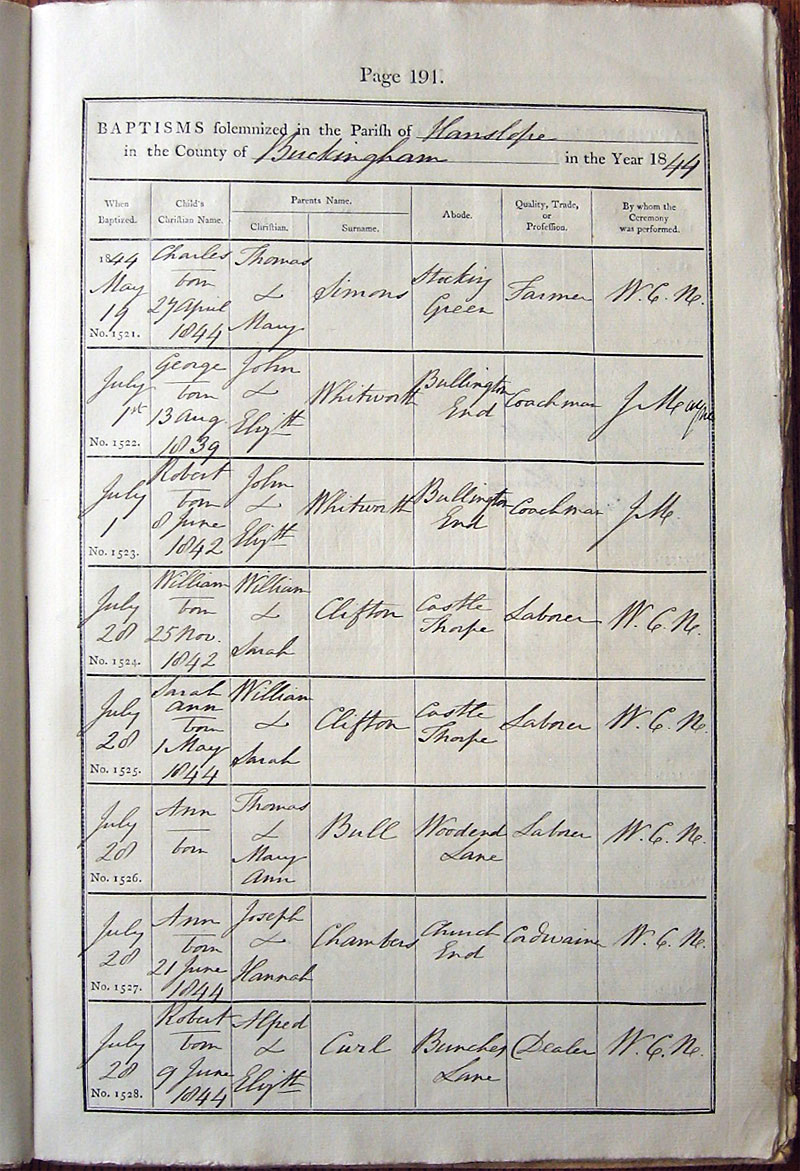 Page 191.
BAPTISMS solemnized in the Parish of Hanslope
in the County of Buckingham in the Year 1844
When Baptized. Child's Christian Name. Parents Name. Christian. Surname. Abode. Quality, Trade, or Profession. By whom the Ceremony was performed.
1844 May 19 No. 1521. Charles born 27 April 1844 Thomas & Mary Simons Stocking Green Farmer W. C. N.
July 1st No. 1522. George born 13 Aug. 1839 John & Elizth Whitworth Bullington End Coachman J. Mayne
July 1 No. 1523. Robert born 8 June 1842 John & Elizth Whitworth Bullington End Coachman J. M.
July 28 No. 1524. William born 25 Nov. 1842 William & Sarah Clifton Castle Thorpe Laborer W. C. N.
July 28 No. 1525. Sarah Ann born 1 May 1844 William & Sarah Clifton Castle Thorpe Laborer W. C. N.
July 28 No. 1526. Ann born Thomas & Mary Ann Bull Woodend Lane Laborer W. C. N.
July 28 No. 1527. Ann born 21 June 1844 Joseph & Hannah Chambers Church End Cordwainer W. C. N.
July 28 No. 1528. Robert born 9 June 1844 Alfred & Elizth Curl Bunches Lane Dealer W. C. N.